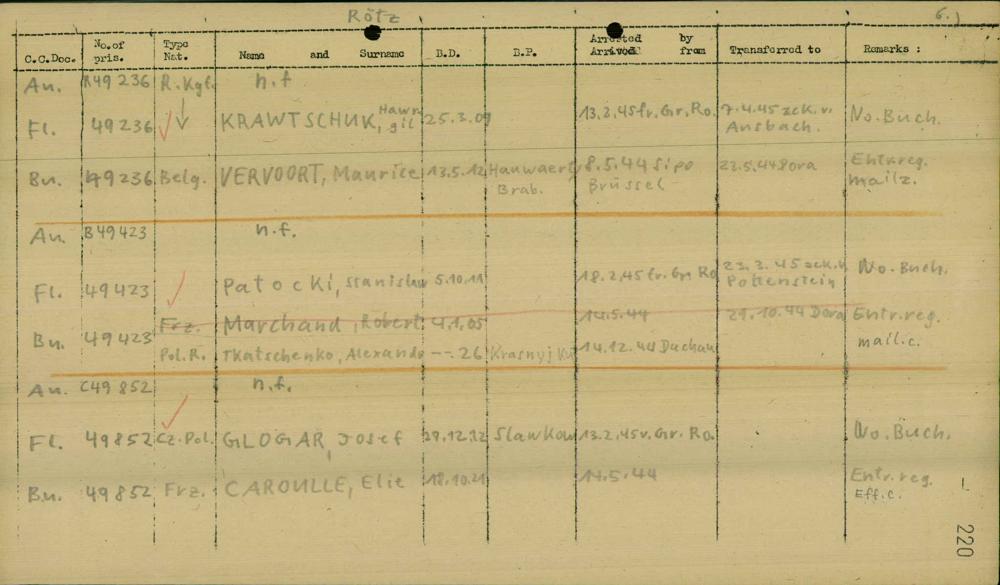 Rötz 6.)
C.C.Doc. No. of pris. Type Nat. Name and Surname B.D. B.P. Arrested Arrived by from Transferred to Remarks :
An. A49236 R.Kgf. n.f
Fl. 49236 KRAWTSCHUK, 25.3.09 13.2.45 fr. Gr. Ro. 7.4.45 zck. v. Ansbach. No. Buch.
Bu. 49236 Belg. VERVOORT, Maurice 13.5.12 Brab. 8.5.44 Sipo Brüssel 23.5.44 Dora Entr.reg. mailz.
An. B49423 n.f.
Fl. 49423 Patocki, Stanislaw 5.10.11 18.2.45 fr. Gr. Ro 23.3.45 zck. v. Pottenstein No. Buch.
Bu. 49423 Frz. Marchand, Robert 4.1.05 14.5.44 29.10.44 Dora Entr.reg. mail.c.
Pol.R. Tkatschenko, Alexandr --.26 14.12.44 Dachau
An. C49852 n.f.
Fl. 49852 Cz.Pol. GLOGAR, Josef 29.12.12 Slawkow 13.2.45 v. Gr. Ro. No. Buch.
Bu. 49852 Frz. CAROULLE, Elie 18.10.21 14.5.44 Entr.reg. Eff.c.
220